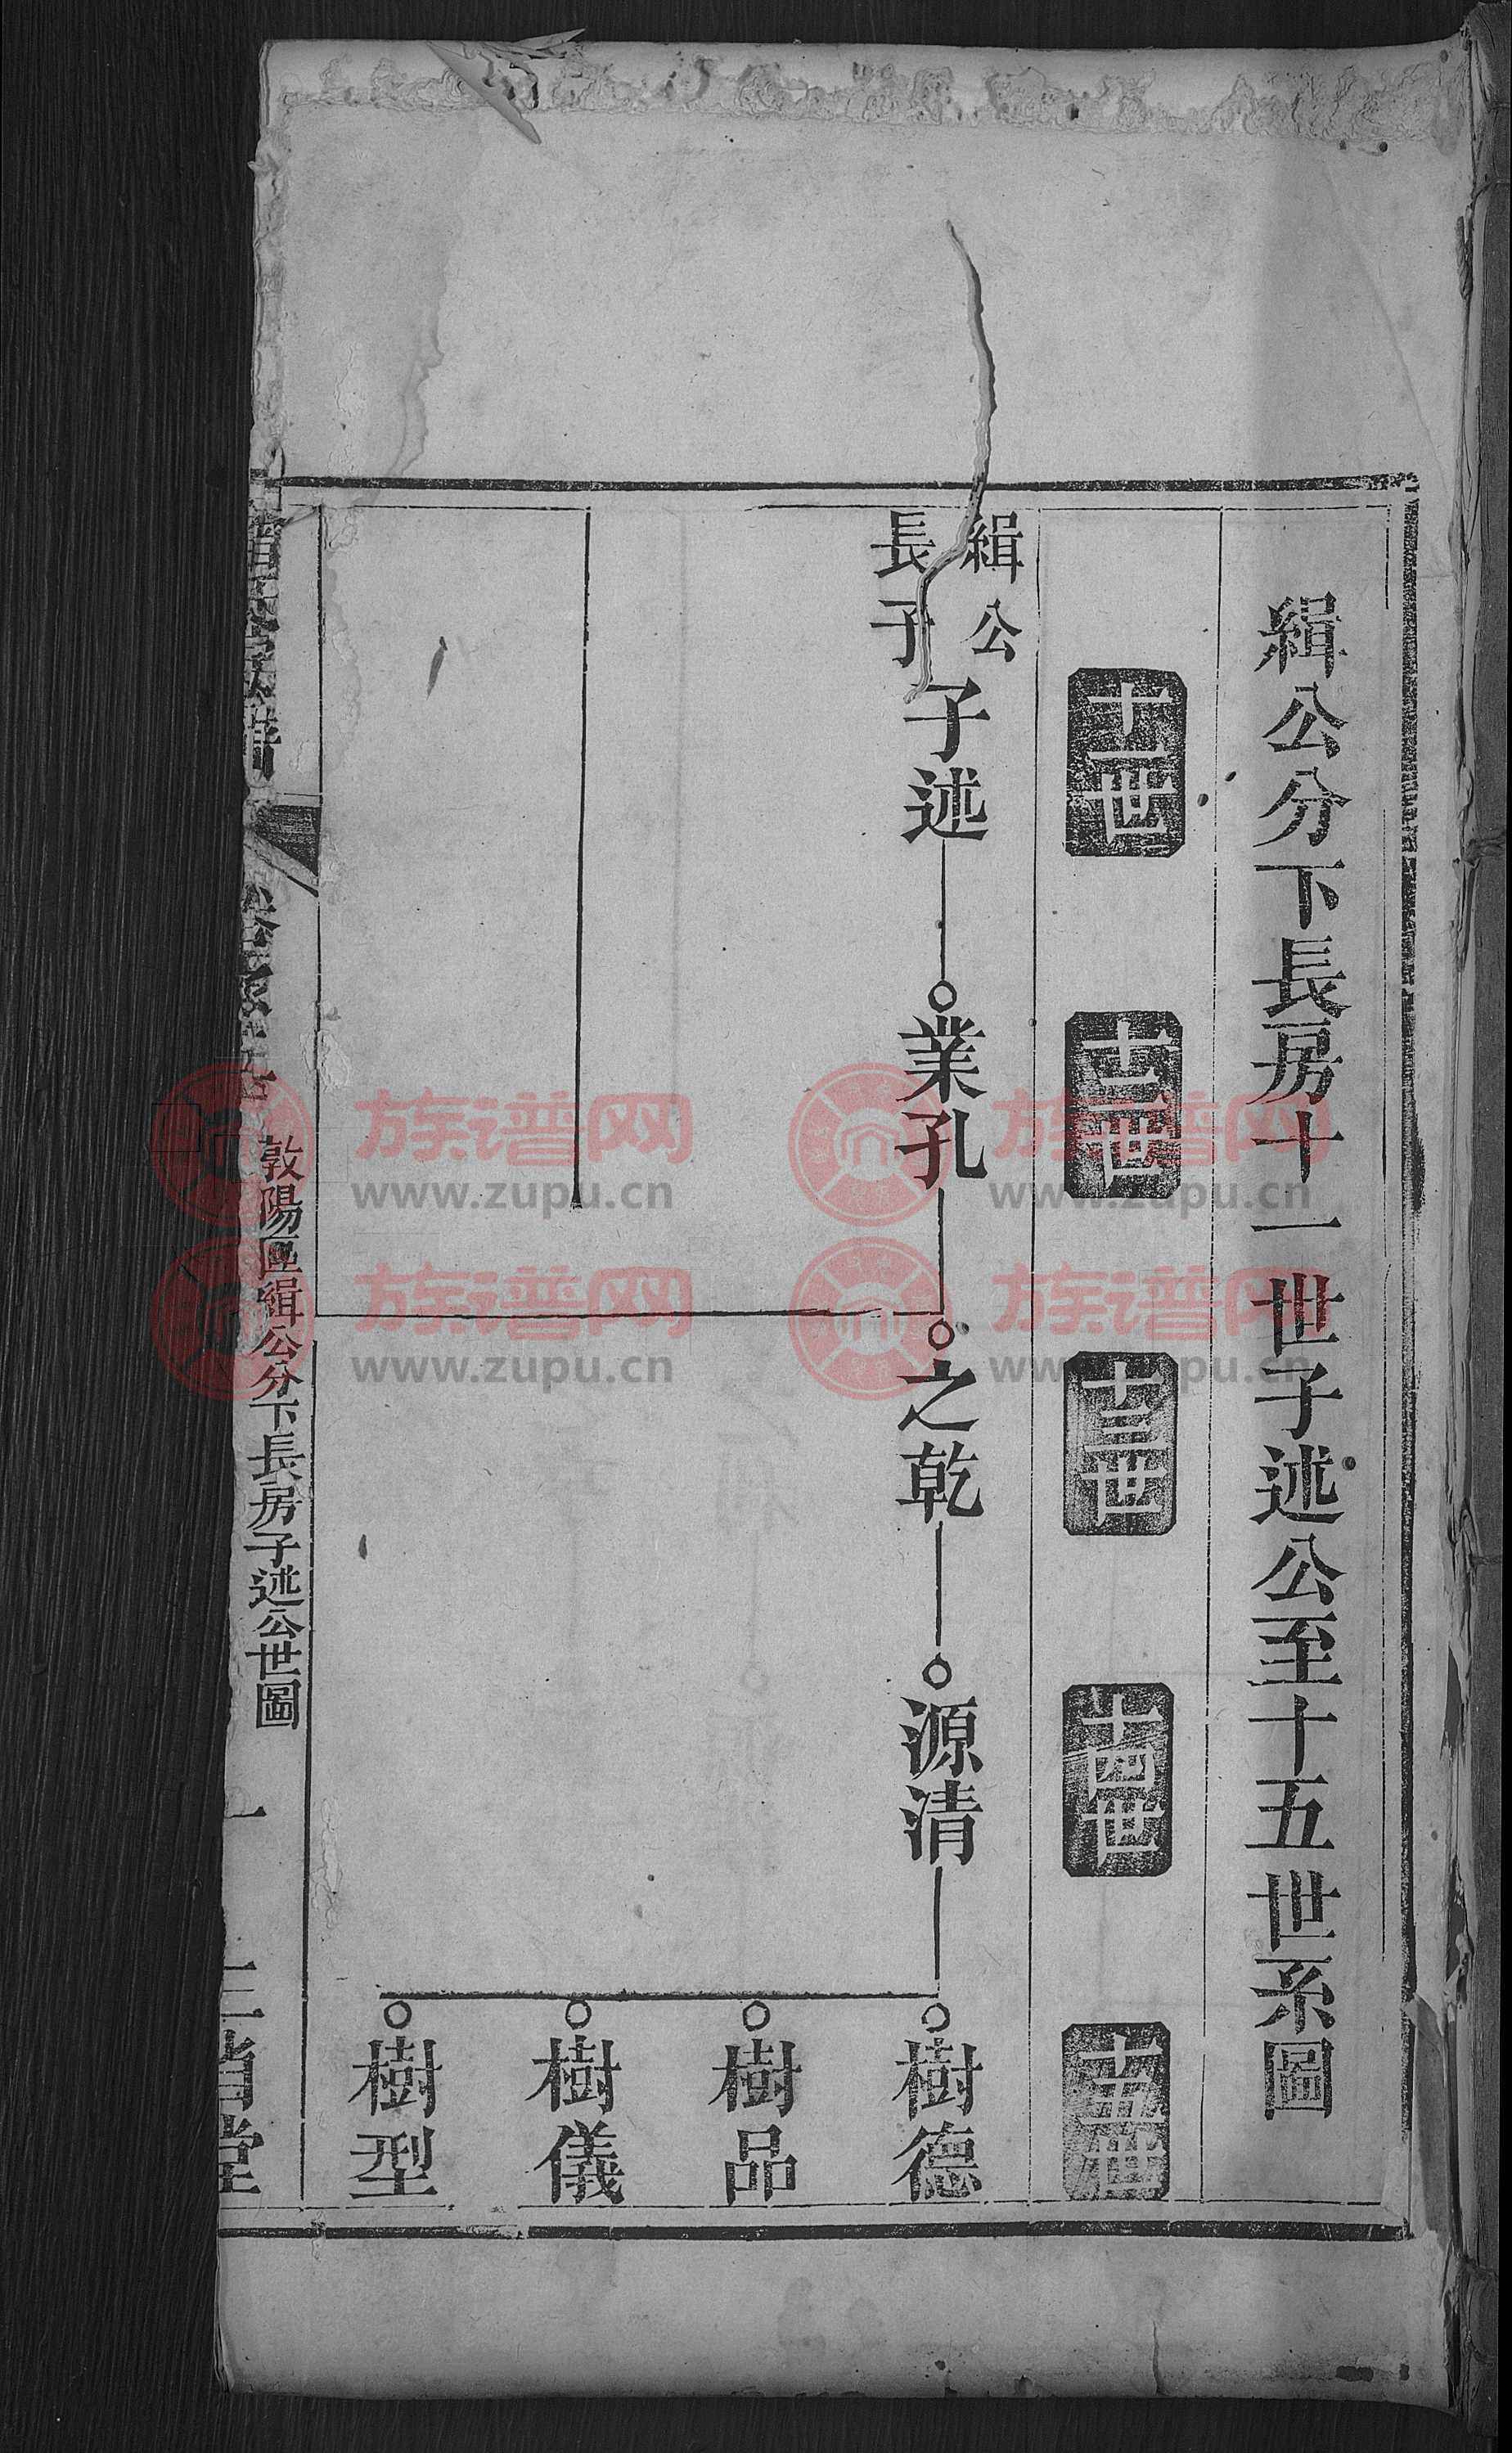 緝公分下長房十一世子述公至十五世系圖
十一世
十二世
十三世
十四世
十五世
緝公
長子
子述
業孔
之乾
源清
樹德
樹品
樹儀
樹型
敦陽區緝公分下長房子述公世圖
一
三省堂
族谱网
www.zupu.cn
族谱网
www.zupu.cn
族谱网
www.zupu.cn
族谱网
www.zupu.cn